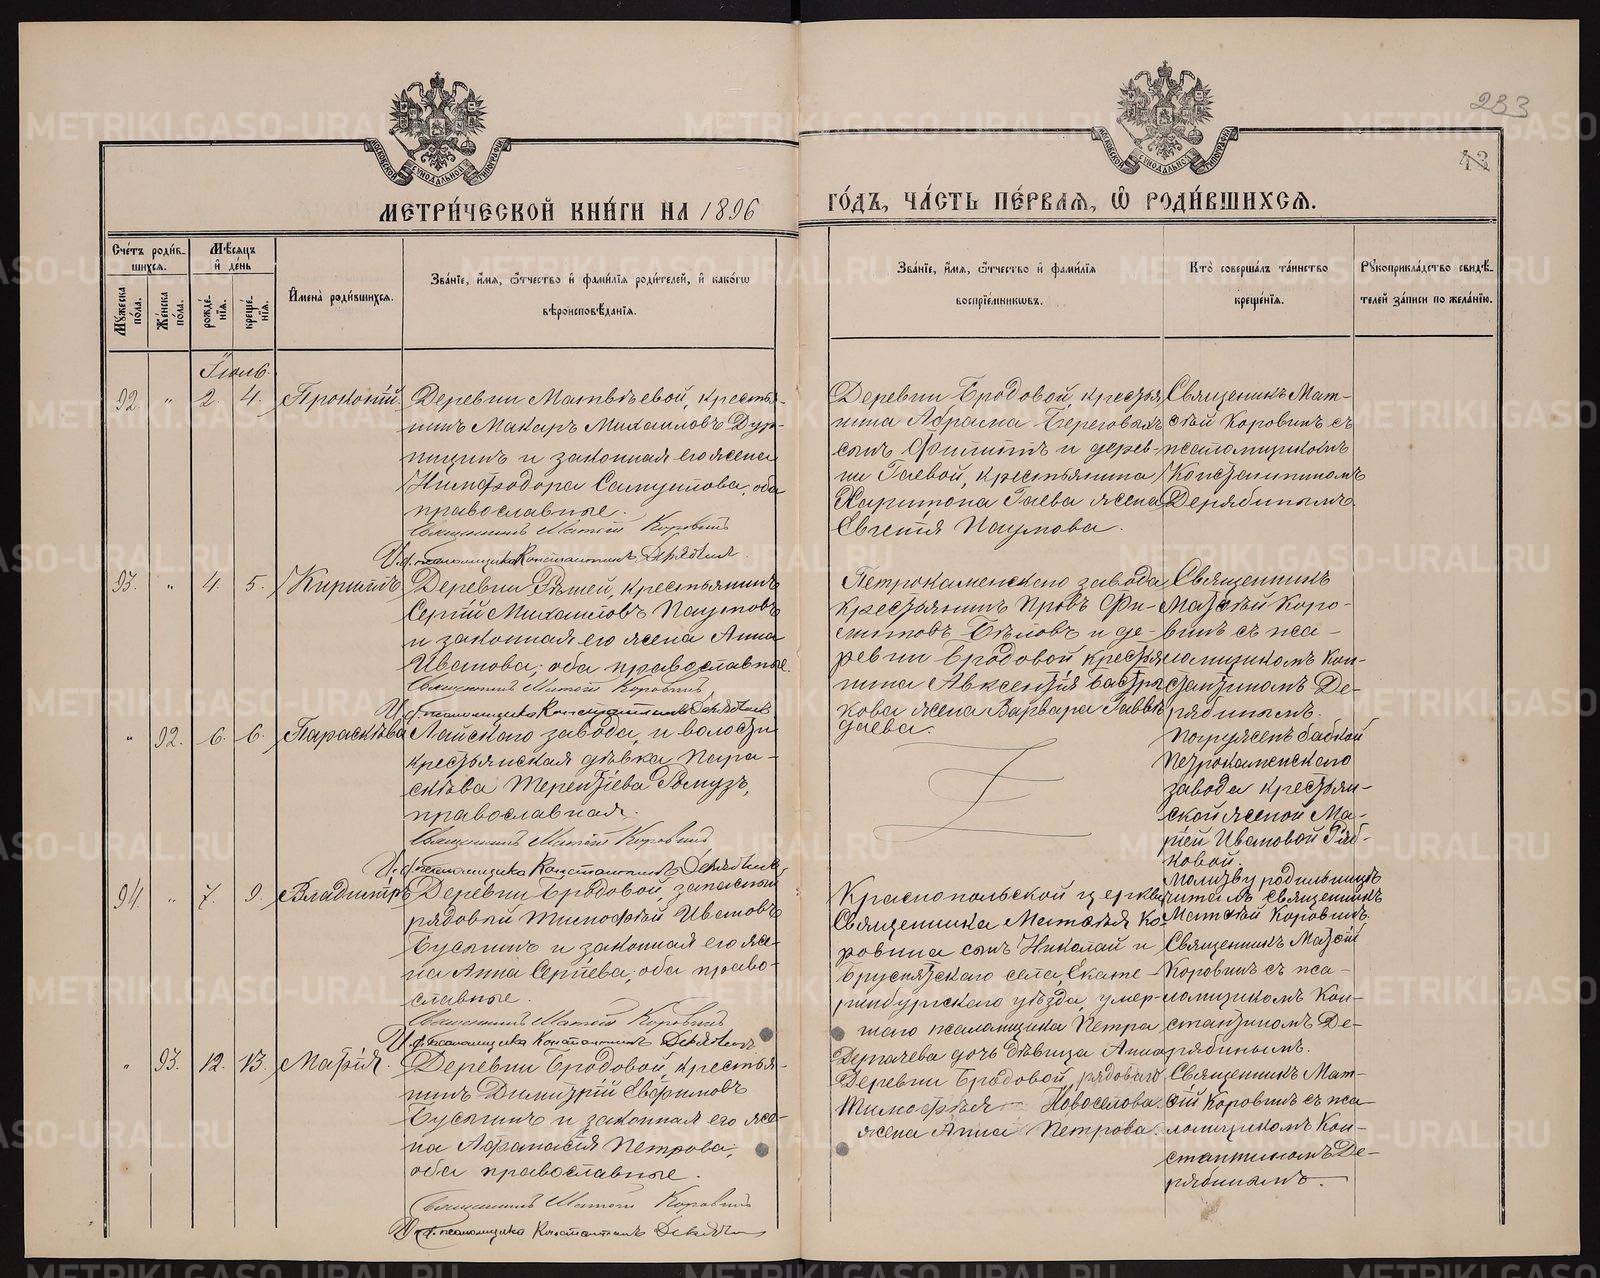 283
43
МЕТРИ́ЧЕСКОЙ КНИ́ГИ НА 1896
ГО́ДЪ, ЧА́СТЬ ПЕ́РВАЯ, Ѿ РОДИ́ВШИХСЯ.
Сче́тъ роди́в-
шихся.
Му́жеска по́ла.
Же́нска по́ла.
Мѣ́сяцъ
и҆ де́нь
рожде́-
нія.
креще́-
нія.
И҆мена̀ роди́вшихся.
Зва́ніе, и҆́мя, ѻ҆́тчество и҆ фами́лія роди́телей, и҆ како́гѡ
вѣроисповѣ́данія.
Зва́ніе, и҆́мя, ѻ҆́тчество и҆ фами́лія
воспріе́мниковъ.
Кто̀ соверша́лъ та́инство
креще́нія.
Рꙋкоприкла́дство свидѣ́-
телей за́писи по жела́нію.
Іюль.
92. " 2. 4. Прокопій.
Деревни Матвѣевой, крестья-
нинъ Макаръ Михаиловъ
и законная его жена
Нимфодора Самуилова, оба
православные.
Священникъ Матѳій Коровинъ
И. д. псаломщика Константинъ Дерябинъ
Деревни Бродовой, крестья
нина Абрама Береговыхъ
сынъ Филиппъ и дерев-
ни Гаевой, крестьянина
Харитона Гаева жена
Евгенія Наумова.
Священникъ Мат-
ѳій Коровинъ съ
псаломщикомъ
Константиномъ
Дерябинымъ.
93. " 4. 5. Кириллъ.
Деревни крестьянинъ
Сергій Михаиловъ Паутовъ
и законная его жена Анна
Иванова; оба православные.
Священникъ Матѳій Коровинъ
И. д. псаломщика Константинъ Дерябинъ
Петрокаменскаго завода
крестьянинъ Провъ Фи-
липповъ Бѣловъ и де-
ревни Бродовой, крестья
нина Авксентія Бастры
кова жена Варвара
даева.
Священникъ
Матѳій Коро-
винъ съ пса-
ломщикомъ Кон-
стантиномъ Де-
рябинымъ.
" 92. 6. 6. Параскѣва
Лайскаго завода, и волости
крестьянская дѣвка Пара-
скѣва Терентіева
православная.
Священникъ Матѳій Коровинъ
И. д. псаломщика Константинъ Дерябинъ
Погруженъ бабкой
Петрокаменскаго
завода крестьян-
ской женой Ма-
ріей Ивановой Ряб-
ковой.
Молитву родильницѣ
читалъ Священникъ
Матѳій Коровинъ.
94. " 7. 9. Владиміръ
Деревни Бродовой, запасный
рядовой Тимофѣй Ивановъ
Бусыгинъ и законная его же-
на Анна Сергіева; оба право-
славные.
Священникъ Матѳій Коровинъ
И. д. псаломщика Константинъ Дерябинъ
Краснопольской церкви
Священника Матѳія Ко-
ровина сынъ Николай и
Бруснятскаго села, Екате-
ринбургскаго уѣзда, умер-
шаго псаломщика Петра
Дергачева дочь дѣвица Анна
Священникъ Матѳій
Коровинъ съ пса-
ломщикомъ Кон-
стантиномъ Де-
рябинымъ.
" 93. 12. 13. Марія.
Деревни Бродовой, крестья-
нинъ Димитрій Евфимовъ
Бусыгинъ и законная его же-
на Афанасія Петрова;
оба православные.
Священникъ Матѳій Коровинъ
И. д. псаломщика Константинъ Дерябинъ
Деревни Бродовой, рядоваго
Тимофѣя Новоселова
жена Анна Петрова.
Священникъ Мат-
ѳій Коровинъ съ пса-
ломщикомъ Кон-
стантиномъ Де-
рябинымъ.